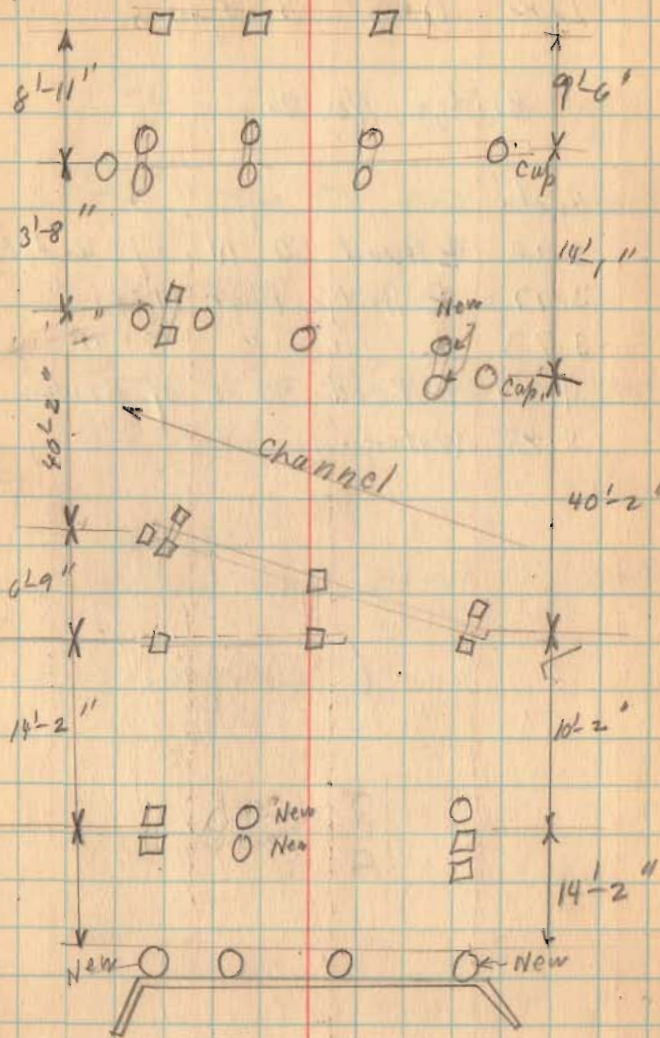 8'-11"
9'-6"
Cap
3'-8"
14'-1"
New
Cap.
40'-2"
Channel
40'-2"
6'-9"
14'-2"
10'-2"
New
New
14'-2"
New
New